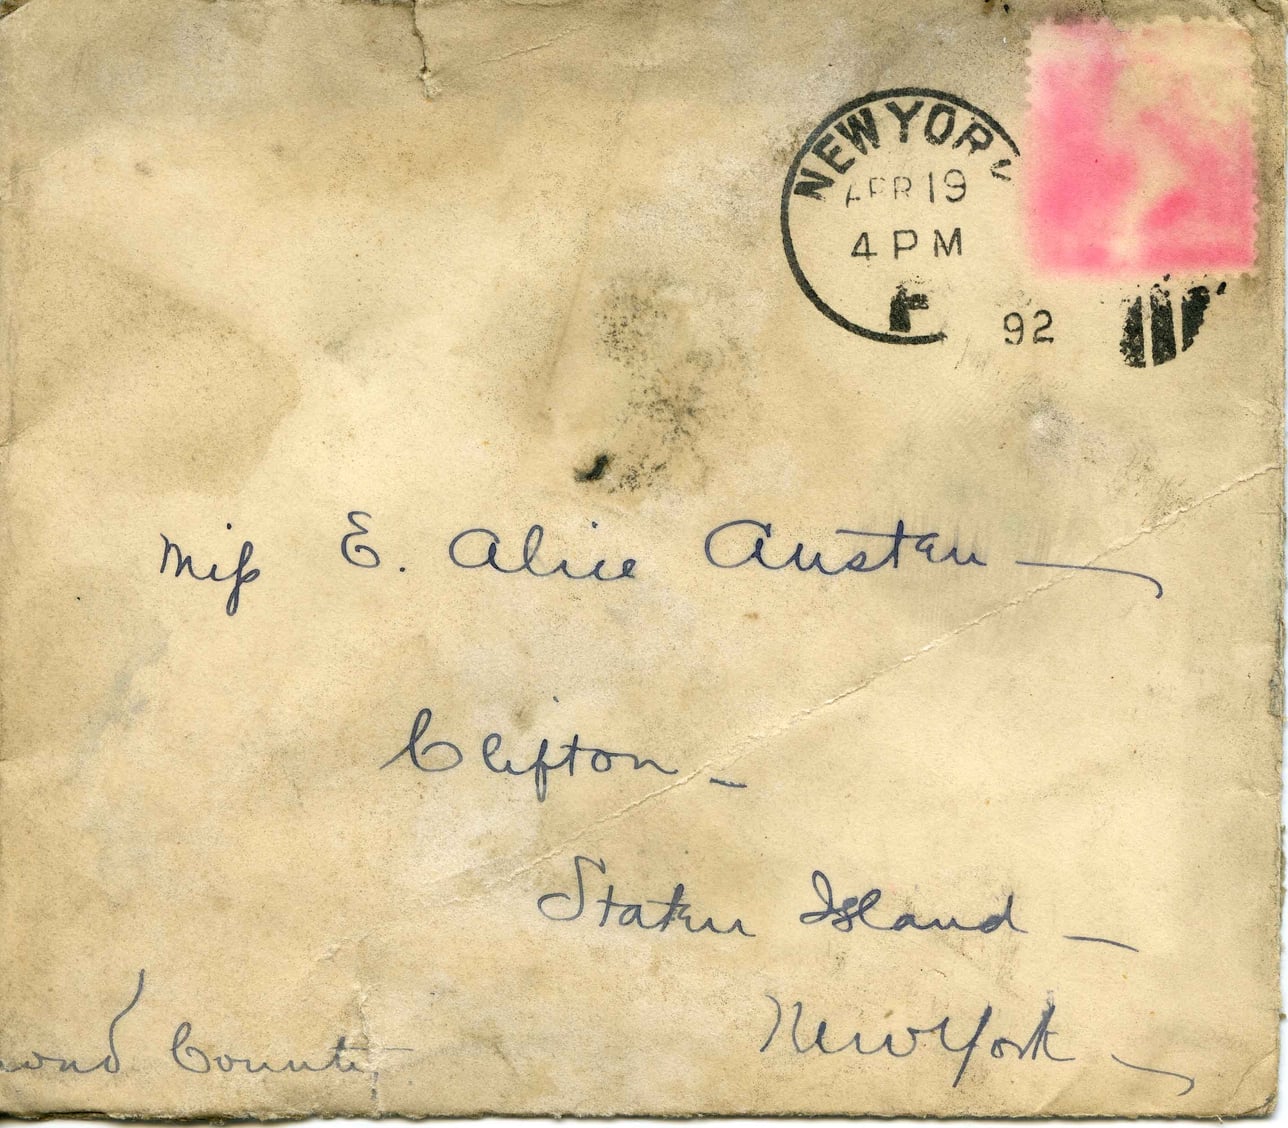 NEW YORK
APR 19
4 PM
F
92
Miss E. Alice Austen
Clifton -
Staten Island -
New York
mond County